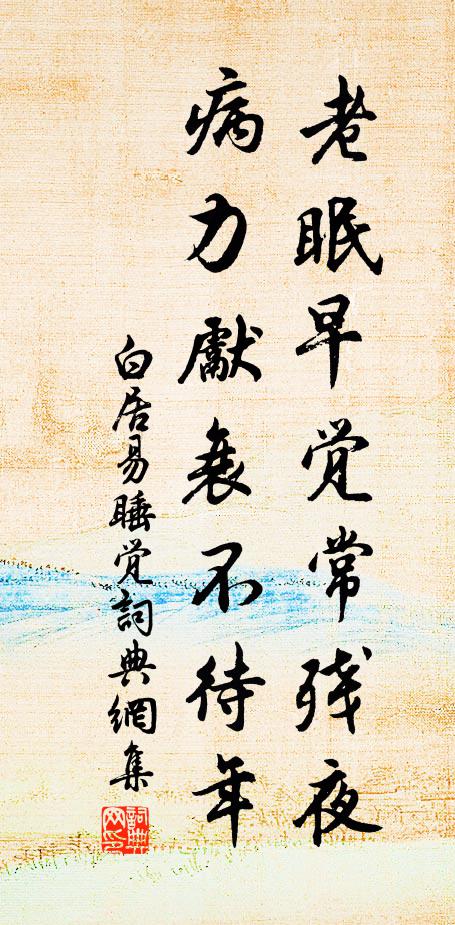 老眠早觉常残夜
病力獻衰不待年
白居易睡觉詞典網集
詞典网印